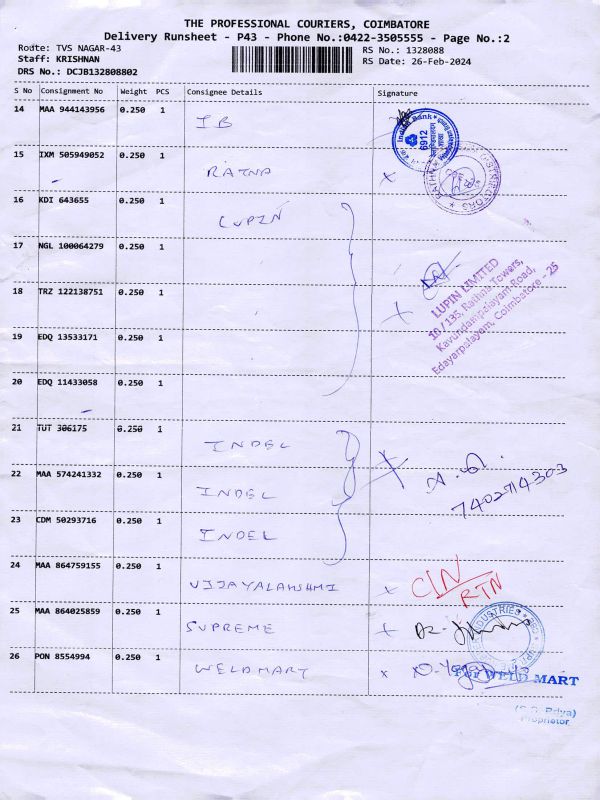 THE PROFESSIONAL COURIERS, COIMBATORE
Delivery Runsheet - P43 - Phone No.:0422-3505555 - Page No.:2
Route: TVS NAGAR-43
RS No.: 1328088
Staff: KRISHNAN
RS Date: 26-Feb-2024
DRS No.: DCJB132808802
S No Consignment No Weight PCS Consignee Details Signature
14 MAA 944143956 0.250 1 IB
Indian Bank 6912
15 IXM 505949052 0.250 1 RATNA x
16 KDI 643655 0.250 1 LUPIN
17 NGL 100064279 0.250 1
18 TRZ 122138751 0.250 1 x
LUPIN LIMITED
10 / 135, Rathna Towers,
Kavundampalayam-Road,
Edayarpalayam, Coimbatore - 25
19 EDQ 13533171 0.250 1
20 EDQ 11433058 0.250 1
21 TUT 306175 0.250 1 INDEL
22 MAA 574241332 0.250 1 INDEL x
23 CDM 50293716 0.250 1 INDEL
24 MAA 864759155 0.250 1 VIJAYALAKSHMI x C/N
RTN
25 MAA 864025859 0.250 1 SUPREME x
INDUSTRIES
26 PON 8554994 0.250 1 WELDMART x
For WELD MART
Priya)
Proprietor